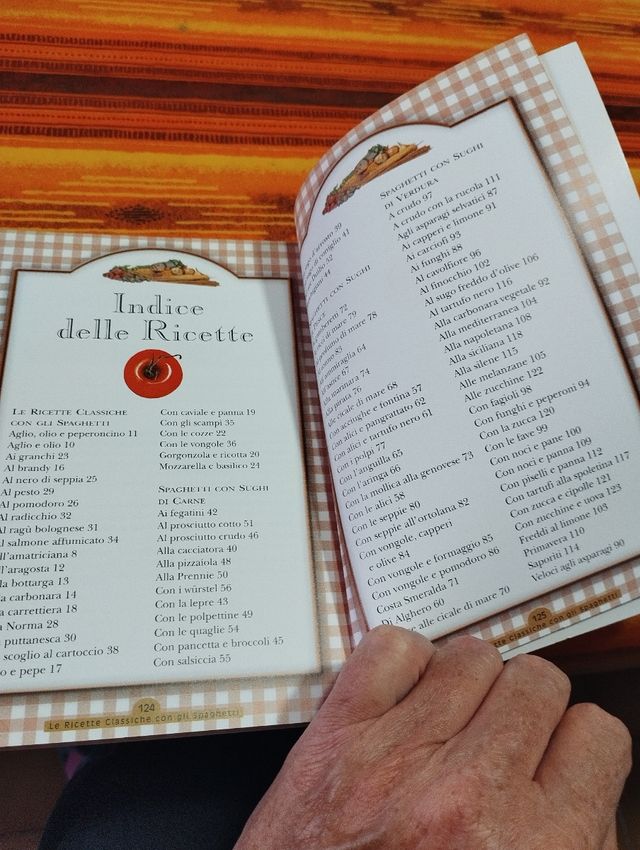 Indice
delle Ricette
Le Ricette Classiche
con gli Spaghetti
Aglio, olio e peperoncino 11
Aglio e olio 10
Ai granchi 23
Al brandy 16
Al nero di seppia 25
Al pesto 29
Al pomodoro 26
Al radicchio 32
Al ragù bolognese 31
Al salmone affumicato 34
all'amatriciana 8
all'aragosta 12
la bottarga 13
la carbonara 14
a carrettiera 18
a Norma 28
a puttanesca 30
scoglio al cartoccio 38
o e pepe 17
Con caviale e panna 19
Con gli scampi 35
Con le cozze 22
Con le vongole 36
Gorgonzola e ricotta 20
Mozzarella e basilico 24
Spaghetti con Sughi
di Carne
Ai fegatini 42
Al prosciutto cotto 51
Al prosciutto crudo 46
Alla cacciatora 40
Alla pizzaiola 48
Alla Prennie 50
Con i würstel 56
Con la lepre 43
Con le polpettine 49
Con le quaglie 54
Con pancetta e broccoli 45
Con salsiccia 55
124
Le Ricette Classiche con gli Spaghetti
39
41
52
44
Spaghetti con Sughi
72
di mare 79
di mare 78
83
ammiraglia 64
67
marinara 74
pirata 76
alle cicale di mare 68
Con acciughe e fontina 57
Con alici e pangrattato 62
Con alici e tartufo nero 61
Con i polpi 77
Con l'anguilla 65
Con l'aringa 66
Con la mollica alla genovese 73
Con le alici 58
Con le seppie 80
Con seppie all'ortolana 82
Con vongole, capperi
e olive 84
Con vongole e formaggio 85
Con vongole e pomodoro 86
Costa Smeralda 71
Di Alghero 60
alle cicale di mare 70
Spaghetti con Sughi
di Verdura
A crudo 97
A crudo con la rucola 111
Agli asparagi selvatici 87
Ai capperi e limone 91
Ai carciofi 93
Ai funghi 88
Al cavolfiore 96
Al finocchio 102
Al sugo freddo d'olive 106
Al tartufo nero 116
Alla carbonara vegetale 92
Alla mediterranea 104
Alla napoletana 108
Alla siciliana 118
Alla silene 115
Alle melanzane 105
Alle zucchine 122
Con fagioli 98
Con funghi e peperoni 94
Con la zucca 120
Con le fave 99
Con noci e pane 100
Con noci e panna 109
Con piselli e panna 112
Con tartufi alla spoletina 117
Con zucca e cipolle 121
Con zucchine e uova 123
Freddi al limone 103
Primavera 110
Saporiti 114
Veloci agli asparagi 90
125
Ricette Classiche con gli Spaghetti